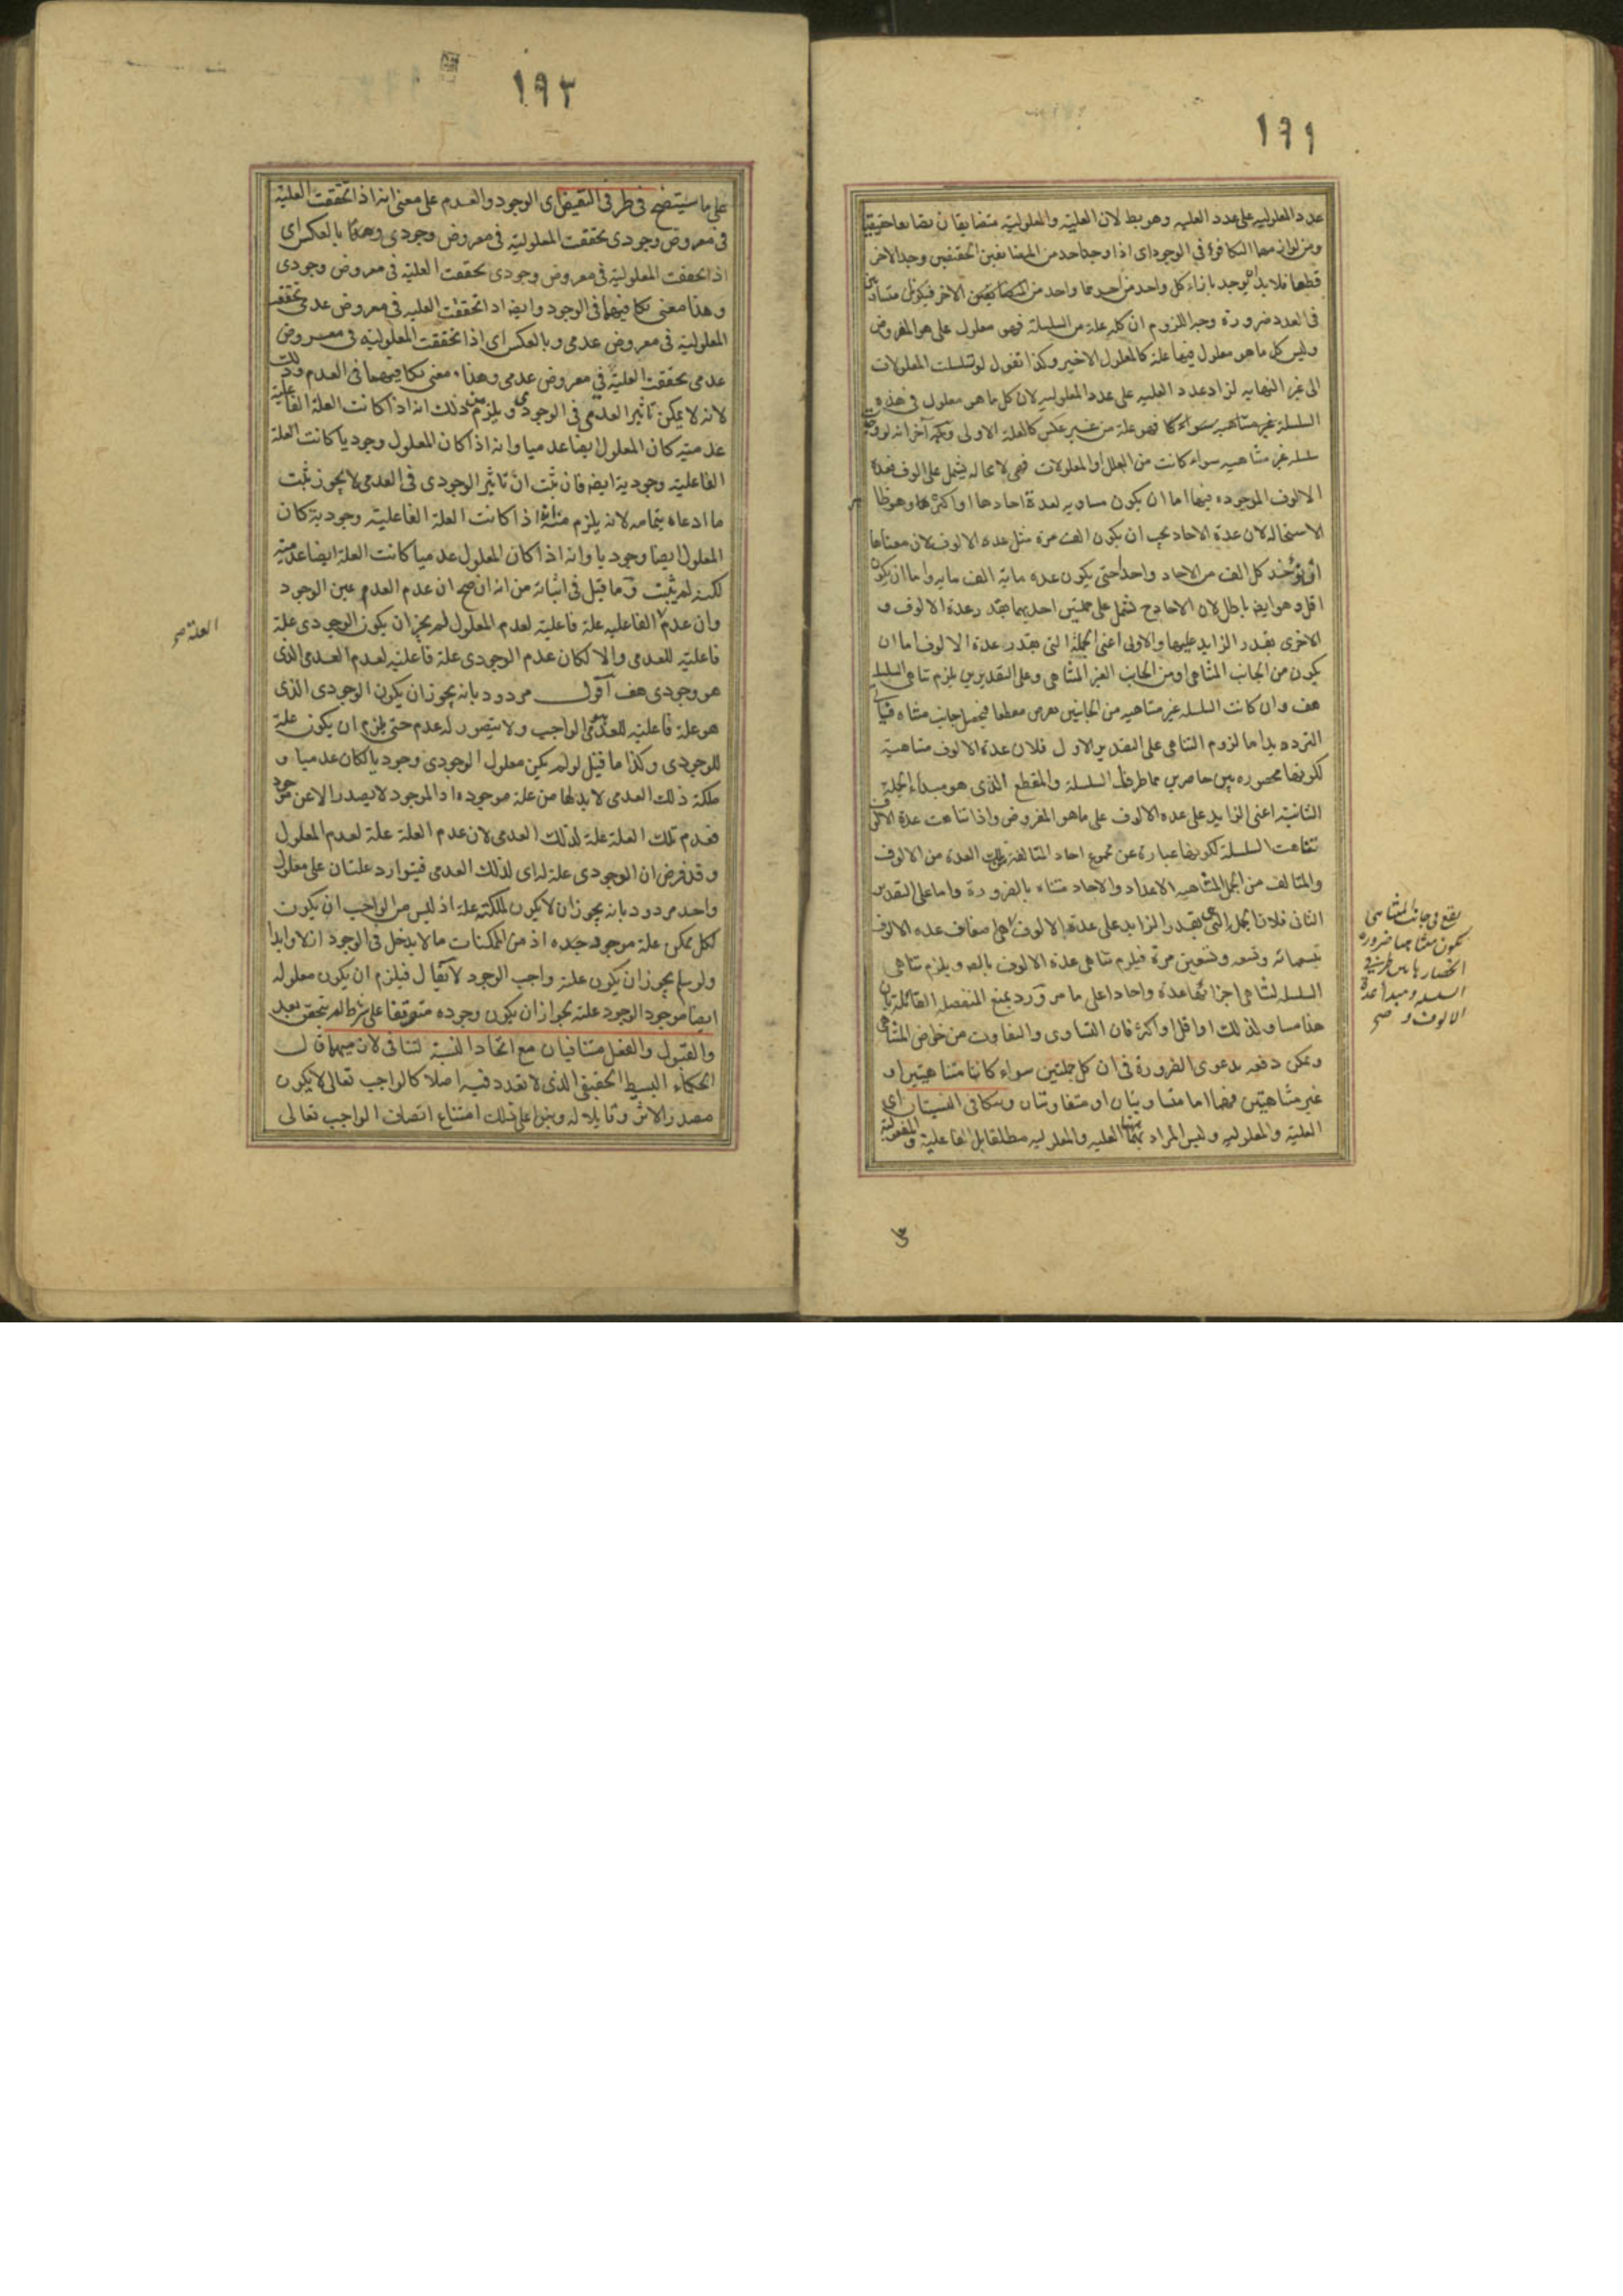 ١٩١
عدد المعلوليه على عدد العليه وهو بط لان العلية والمعلولية متضايفان تضايفا حقيقيا
ومن لوازمهما التكافؤ فى الوجود اى اذا وجد احد من المتضايفين الحقيقيين وجد الاخر
قطعا فلا بد ان يوجد بازاء كل واحد من احدهما واحد من الاخر فيكونان متساويين
فى العدد ضرورة وجه اللزوم ان كل علة من السلسلة فهو معلول على هو المفروض
وليس كل ما هو معلول فيها علة كالمعلول الاخير وكذا نقول لو تسلسلت المعلولات
الى غير النهايه لزاد عدد العليه على عدد المعلوليه لان كل ما هو معلول فى هذه
السلسلة غير متناهيه فهو علة من غير عكس كالعلة الاولى وبوجه آخر انه لو وجد
سلسله غير متناهيه سواء كانت من العلل او المعلولات فهى لا محاله يشتمل على الوف فعدة
الالوف الموجوده فيها اما ان يكون مساويه لعدة احادها او اكثر وهو ظا
الاستحاله لان عدة الاحاد يجب ان يكون الف مرة مثل عده الالوف لان معناها
ان يؤخذ كل الف من الاحاد واحدا حتى يكون عده مائة الف مايه واما ان يكون
اقل وهو ايضا باطل لان الاحاد ح تشتمل على جملتين احديهما بقدر عدة الالوف و
الاخرى بقدر الزايد عليها والاولى اعنى الجملة التى بقدر عدة الالوف اما ان
يكون من الجانب المتناهى او من الجانب الغير المتناهى وعلى التقديرين يلزم تناهى السلسله
هف وان كانت السلسله غير متناهيه من الجانبين نعرض مقطعا فيحصل جانب متناه فيتأتى
الترديد اما لزوم التناهى على التقدير الاول فلان عدة الالوف متناهية
لكونها محصوره بين حاصرين هما طرف السلسلة والمقطع الذى هو مبدأ الجملة
الثانية اعنى الزايد على عده الالوف على ما هو المفروض واذا تناهت عدة الالوف
تناهت السلسلة لكونها عبارة عن مجموع احاد المتالفة من تلك العدة من الالوف
والمتالف من الجمل المتناهيه الاعداد والاحاد متناه بالضرورة واما على التقدير
الثانى فلان الجملة التى بقدر الزايد على عدة الالوف اضعاف عده الالوف
بتسعمائه وتسعه وتسعين مرة فيلزم تناهى عدة الالوف بالضرورة ويلزم تناهى
السلسله لتناهى اجزائها عدة واحادا على ما مر ورد بمنع المنفصله القائلة بان
هذا مساو لذلك او اقل او اكثر فان التساوى والتفاوت من خواص المتناهى
ويمكن دفعه بدعوى الضرورة فى ان كل جملتين سواء كانا متناهيتين او
غير متناهيتين فهما اما متساويتان او متفاوتتان وتتكافى النسبتان اى
العلية والمعلوليه وليس المراد بهما العليه والمعلوليه مطلقا بل الفاعلية والمفعولية
يقع فى جانب المتناهى
يكون متناهيا ضرورة
انحصارها بين طرفى
السلسله ومبدأ عدة
الالوف و صح
١٩٢
على ما سيتضح فى طرفى النقيض اى الوجود والعدم على معنى انه اذا تحققت العلية
فى معروض وجودى تحققت المعلولية فى معروض وجودى وهكذا بالعكس اى
اذا تحققت المعلولية فى معروض وجودى تحققت العلية فى معروض وجودى
وهذا معنى تكافيهما فى الوجود وايضا اذا تحققت العليه فى معروض عدمى تحققت
المعلولية فى معروض عدمى وبالعكس اى اذا تحققت المعلوليه فى معروض
عدمى تحققت العلية فى معروض عدمى وهذا معنى تكافيهما فى العدم وذلك
لانه لا يمكن تأثير العدمى فى الوجودى ويلزم من ذلك انه اذا كانت العلة الفاعلية
عدمية كان المعلول ايضا عدميا وانه اذا كان المعلول وجوديا كانت العلة
الفاعلية وجودية ايضا فان ثبت ان تاثير الوجودى فى العدمى لا يجوز ثبت
ما ادعاه بتمامه لانه يلزم منه اذا كانت العلة الفاعلية وجودية كان
المعلول ايضا وجوديا وانه اذا كان المعلول عدميا كانت العلة ايضا عدمية
لكنه لم يثبت وما قيل فى اثباته من انه ان صح ان عدم العدم عين الوجود
وان عدم الفاعليه علة فاعلية لعدم المعلول لم يجز ان يكون الوجودى علة
فاعلية للعدمى والا لكان عدم الوجودى علة فاعلية لعدم العدمى الذى
هو وجودى هف اقول مردود بانه يجوز ان يكون الوجودى الذى
هو علة فاعلية للعدمى الواجب ولا يتصور له عدم حتى يلزم ان يكون علة
للوجودى وكذا ما قيل لو لم يكن معلول الوجودى وجوديا لكان عدميا و
ملكة ذلك العدمى لا بد لها من علة موجوده اذ الموجود لا يصدر الا عن موجود
فعدم تلك العلة علة لذلك العدمى لان عدم العلة علة لعدم المعلول
وقد فرض ان الوجودى علة له اى لذلك العدمى فيتوارد علتان على معلول
واحد مردود بانه يجوز ان لا يكون لملكته علة اذ ليس من الواجب ان يكون
لكل ممكن علة موجوده اذ من الممكنات ما لا يدخل فى الوجود ازلا وابدا
ولو سلم يجوز ان يكون علته واجب الوجود لا يقال فيلزم ان يكون معلوله
ايضا موجود الوجود علته لجواز ان يكون وجوده متوقفا على شرط لم يتحقق بعد
والقبول والفعل متنافيان مع اتحاد النسبة لتنافى لازميهما قال
الحكماء البسيط الحقيقى الذى لا تعدد فيه اصلا كالواجب تعالى لا يكون
مصدر الاثر وقابلا له وبنوا على ذلك امتناع اتصاف الواجب تعالى
العلة صح